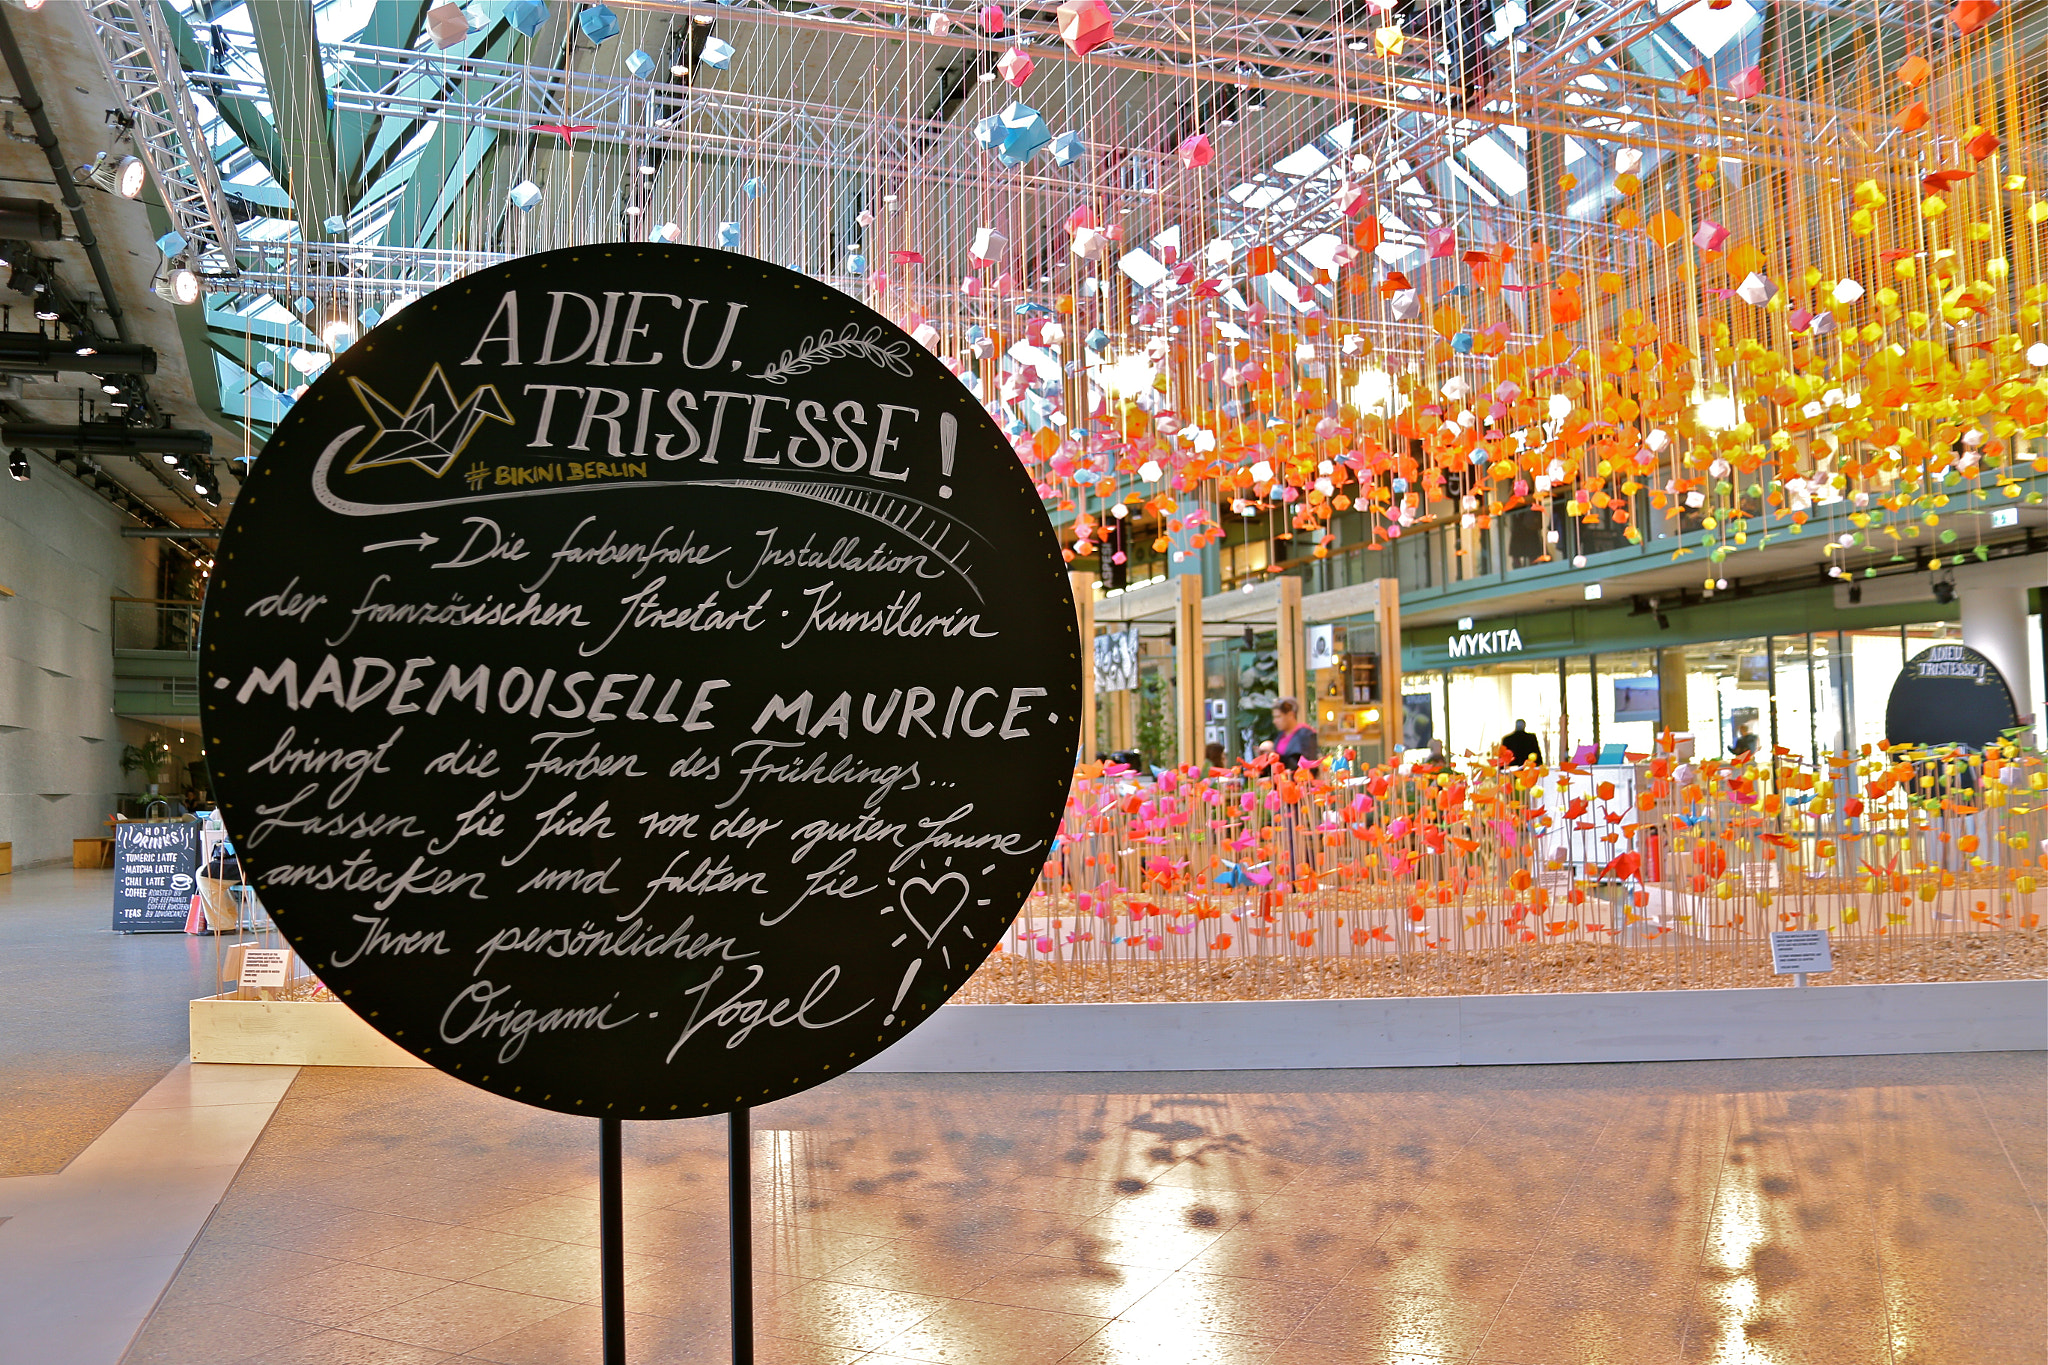 ADIEU,
TRISTESSE!
#BIKINIBERLIN
→ Die farbenfrohe Installation
der französischen Streetart-Künstlerin
·MADEMOISELLE MAURICE·
bringt die Farben des Frühlings...
Lassen Sie sich von der guten Laune
anstecken und falten Sie
Ihren persönlichen
Origami-Vogel!
MYKITA
ADIEU,
TRISTESSE!
HOT
DRINKS
·TUMERIC LATTE
·MATCHA LATTE
·CHAI LATTE
·COFFEE ROASTED BY
FIVE ELEPHANTS
COFFEE ROASTERY
·TEAS BY